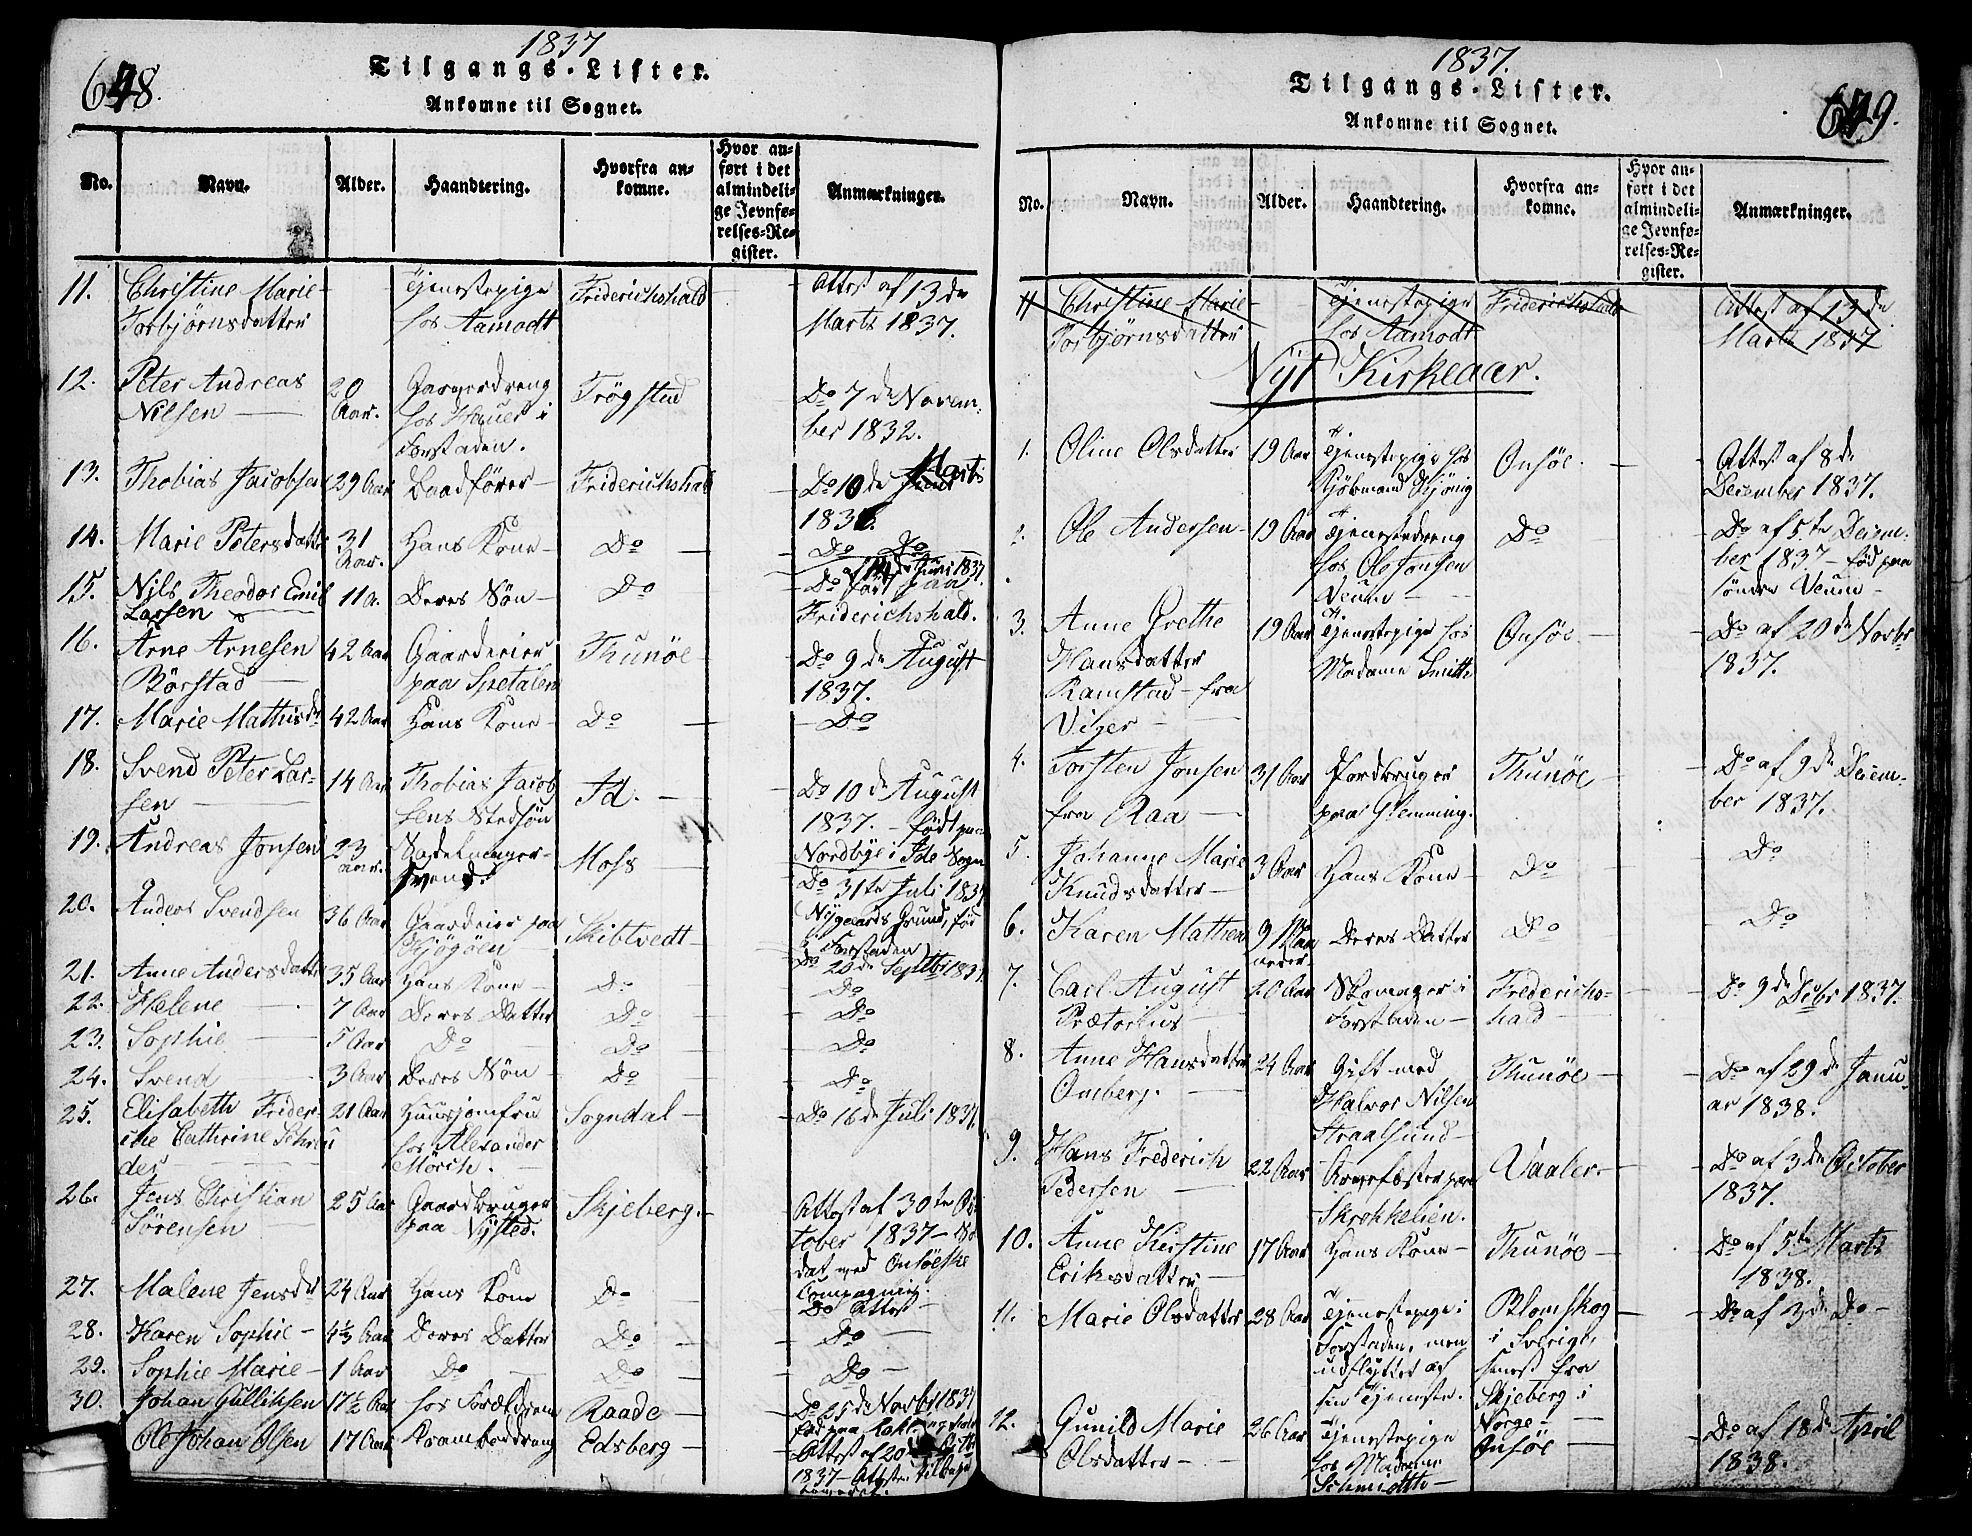 1837
648.
Tilgangs-Lister.
Ankomne til Sognet.
No. Navn. Alder. Haandtering. Hvorfra ankomne. Hvor anført i det almindelige Jevnførelses-Register. Anmærkninger.
11. Christine Marie Tjenestepige Friderichshald Attest af 13de
Torbjørnsdatter hos Aamodt Marts 1837.
12. Peter Andreas 20 Trögstad Do 7de Novem-
Nilsen Aar. hos i ber 1832.
Forstaden.
13. Thobias Jacobsen 29 Aar Baadförer Friderichshald Do 10de Marts
14. Marie Petersdatter 31 Hans Kone Do Do Do
Aar.
15. Nils Theodor Emil 11 A. Deres Sön Do
Larsen Friderichshald.
16. Arne Arnesen 42 Aar Gaardeier Thunöe Do 9de August
Börstad paa Spetalen 1837.
17. Marie Mathisdr 42 Aar Hans Kone Do Do
18. Svend Peter Lar- 14 Aar Thobias Jacob Id. Do 10de August
sen sens Stedsön 1837. födt paa
19. Andreas Jonsen 23 Moss Nordbye i Ide Sogn
Aar. svend. Do 31te Juli 1837
20. Anders Svendsen 36 Aar Gaardeier paa Skibtvedt Nygaards Grund, född
Kjögöen i Forstaden
21. Anne Andersdatter 35 Aar Hans Kone Do Do 20de Septbr 1837.
22. Helene 7 Aar Deres Datter Do Do
23. Sophie 5 Aar Do Do Do
24. Svend 3 Aar Deres Sön Do Do
25. Elisabeth Frideri- 21 Aar Huusjomfru Sogndal Do 16de Juli 1837.
che Cathrine Schrö hos Alexander
der Mörch.
26. Jens Christian 25 Aar Gaardbruger Skjeberg. Attest af 30te Oc-
Sörensen paa Nysted. tober 1837 Sol
dat ved Onsöeske
Compagnie.
27. Malene Jensdr 24 Aar Hans Kone Do Do Attest
28. Karen Sophie 4½ Aar Deres Datter Do Do
29. Sophie Marie 1 Aar Do Do Do
30. Johan Gulliksen 17½ Aar hos Forældrene Raade Do 25de Novbr 1837
Ole Johan Olsen 17 Aar Kramboddreng Edsberg Attest af 20de
1837 Attesten tilbage
1837.
649.
Tilgangs-Lister.
Ankomne til Sognet.
No. Navn. Alder. Haandtering. Hvorfra ankomne. Hvor anført i det almindelige Jevnførelses-Register. Anmærkninger.
11 Christine Marie Tjenestepige Friderichshald Attest af 13de
Torbjørnsdatter hos Aamodt Marts 1837
Nyt Kirkeaar.
1. Oline Olsdatter 19 Aar Tjenestepige hos Onsöe. Attest af 8de
December 1837.
2. Ole Andersen 19 Aar Tjenestedreng Do Do af 5te Decem-
hos Ole Jonsen ber 1837 född paa
Veum söndre Veum
3. Anne Grethe 19 Aar Tjenestepige hos Onsöe Do af 20de Novbr
Hansdatter Madame Smitte 1837.
Ramstad fra
Viger
4. Torsten Jonsen 31 Aar Jordbruger Thunöe Do af 9de Decem-
fra Raa paa Glemming. ber 1837.
5. Johanne Marie 3 Aar Hans Kone Do Do
Knudsdatter
6. Karen Mathea 9 Maa Deres Datter Do Do
neder
7. Carl August 20 Aar Skomager i Frederichs- Do 9de Debr 1837.
Prætorius Forstaden hald
8. Anne Hansdatter 24 Aar Gift med Thunöe Do af 29de Janu-
Omberg. Halvor Nilsen ar 1838.
Straalsund
9. Hans Frederich 22 Aar Vaaler. Do af 3de October
Pedersen Skrokkelien. 1837.
10. Anne Kirstine 17 Aar Hans Kone Thunöe Do af 5te Marts
Eriksdatter 1838.
11. Marie Olsdatter 28 Aar Tjenestepige i Blomskog Do af 3de Do
Forstaden, men i Sverige,
udflyttet af senest fra
sin Tjeneste. Skjeberg i
Norge
12. Gunild Marie 26 Aar Tjenestepige Onsöe Do af 18de April
Olsdatter hos Madame 1838.
Schmidtth